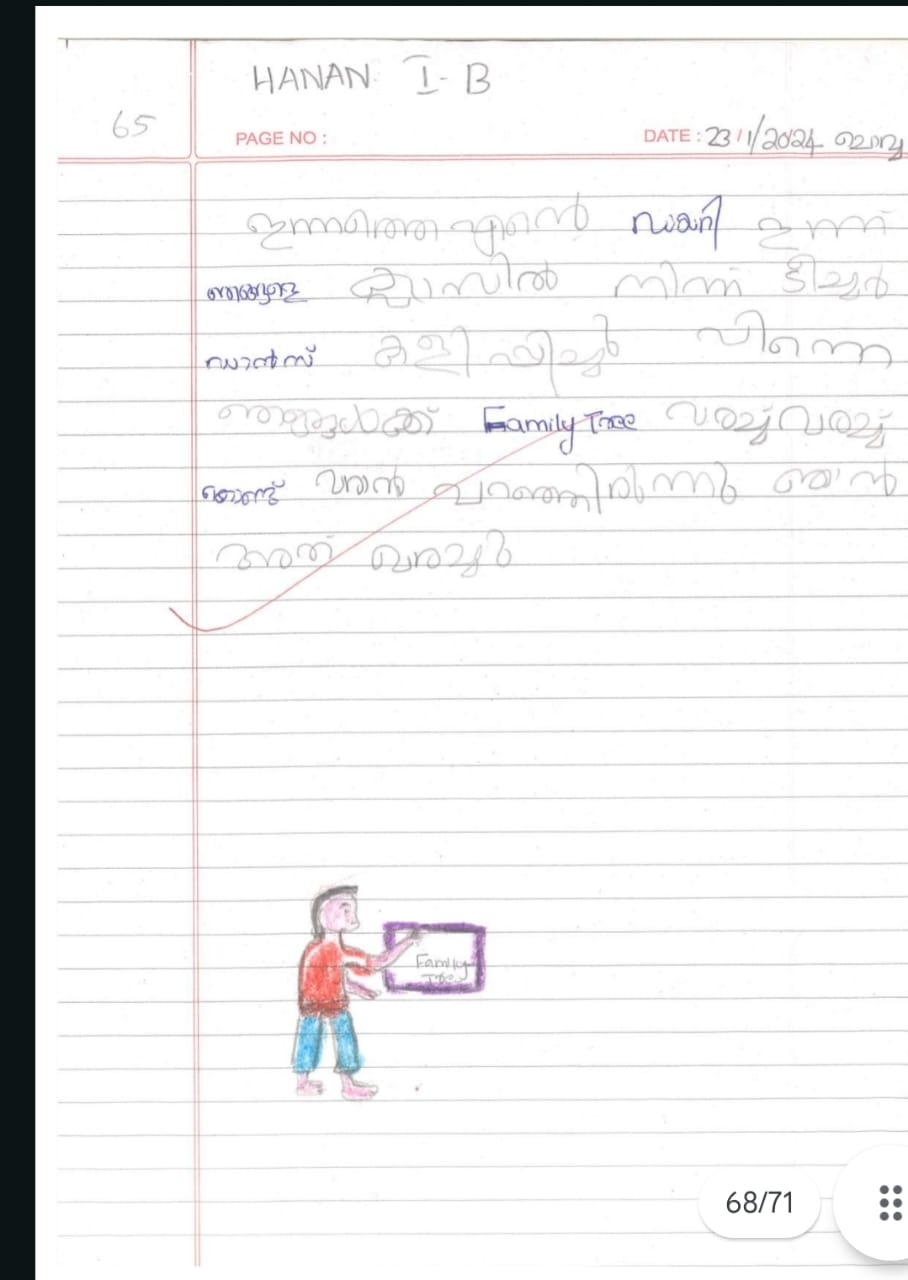 HANAN I-B
65
PAGE NO :
DATE : 23/1/2024 ചൊവ്വ
ഇന്നത്തെ എന്റെ ഡയറി ഇന്ന്
ഞങ്ങളെ ക്ലാസിൽ നിന്ന് ടീച്ചർ
ഡാൻസ് കളിപ്പിച്ചു പിന്നെ
ഞങ്ങൾക്ക് Family Tree വരച്ച് വരച്ച്
കൊണ്ട് വരാൻ പറഞ്ഞിരുന്നു ഞാൻ
അത് വരച്ചു
Family
Tree
68/71